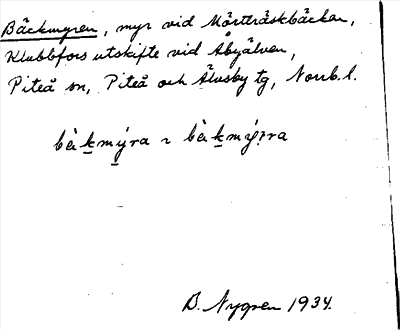 Bäckmyren, myr vid Mörtträskbäcken,
Klubbfors utskifte vid Åbyälven,
Piteå sn, Piteå och Älvsby tg, Norrb. l.
bèḵm̱ýra ~ bèḵmýrra
B. Nygren 1934.